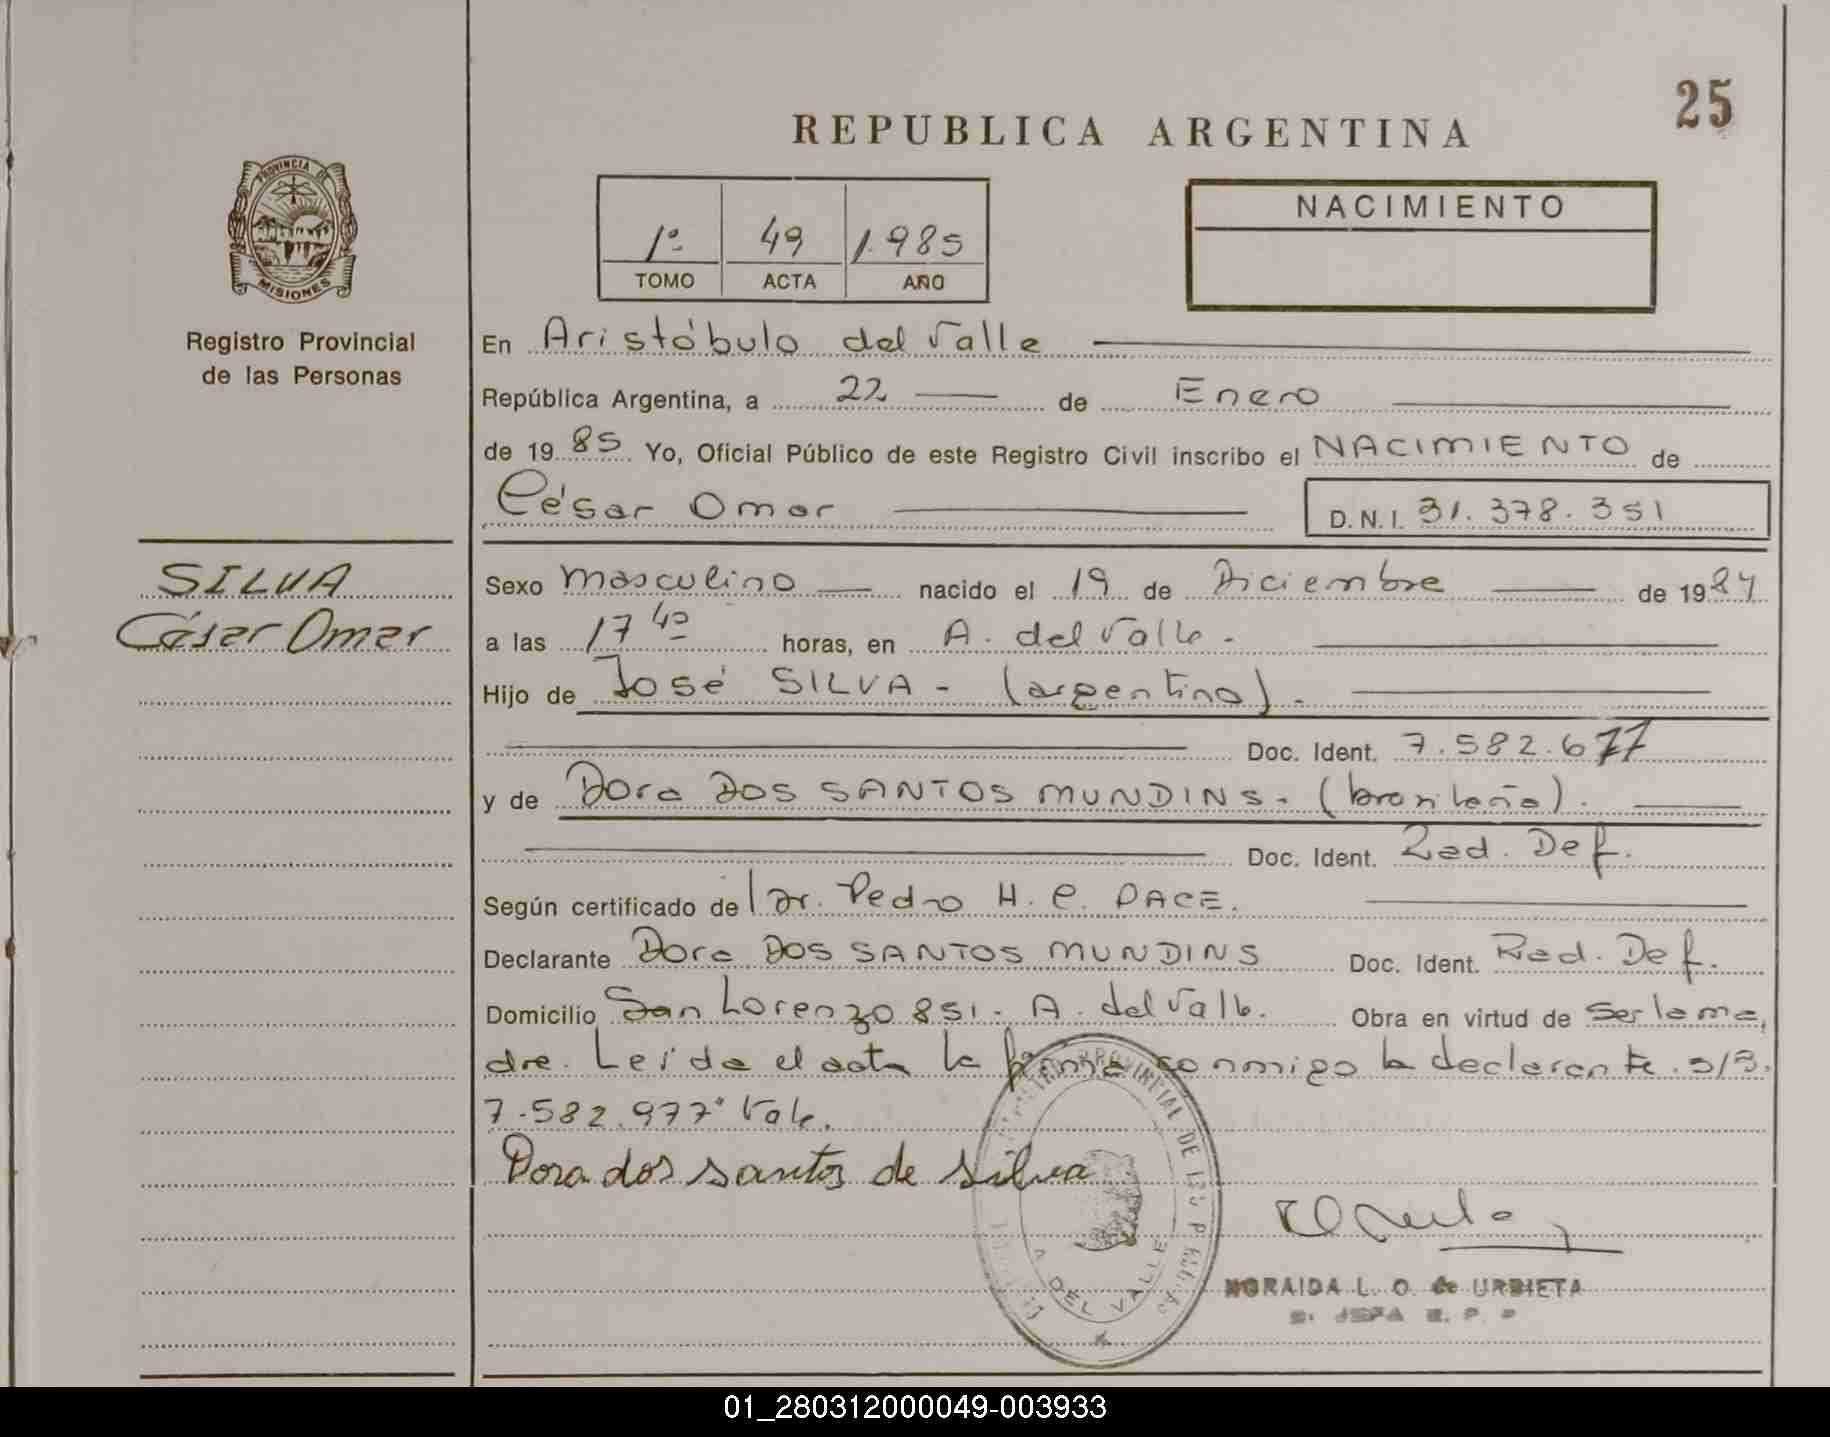 25
REPUBLICA ARGENTINA
PROVINCIA DE
MISIONES
Registro Provincial
de las Personas
1º 49 1.985
TOMO ACTA AÑO
NACIMIENTO
En Aristóbulo del Valle
República Argentina, a 22 de Enero
de 19 85 Yo, Oficial Público de este Registro Civil inscribo el NACIMIENTO de
César Omar D.N.I. 31.378.351
SILVA
César Omar
Sexo masculino nacido el 19 de Diciembre de 1984
a las 17 40 horas, en A. del Valle.
Hijo de José SILVA - (argentino).
Doc. Ident. 7.582.677
y de Dora DOS SANTOS MUNDINS. (brasileña).
Doc. Ident. Rad. Def.
Según certificado de Dr. Pedro H. C. PACE.
Declarante Dora DOS SANTOS MUNDINS Doc. Ident. Rad. Def.
Domicilio San Lorenzo 851. A. del Valle. Obra en virtud de ser la ma,
dre. Leída el acta la firma conmigo la declarante. S/B.
7.582.977" Vale.
Dora dos santos de silva
PROVINCIAL DE LAS PERSONAS
A. DEL VALLE
NORAIDA L. O. de URBIETA
JEFA R. P. P
01_280312000049-003933